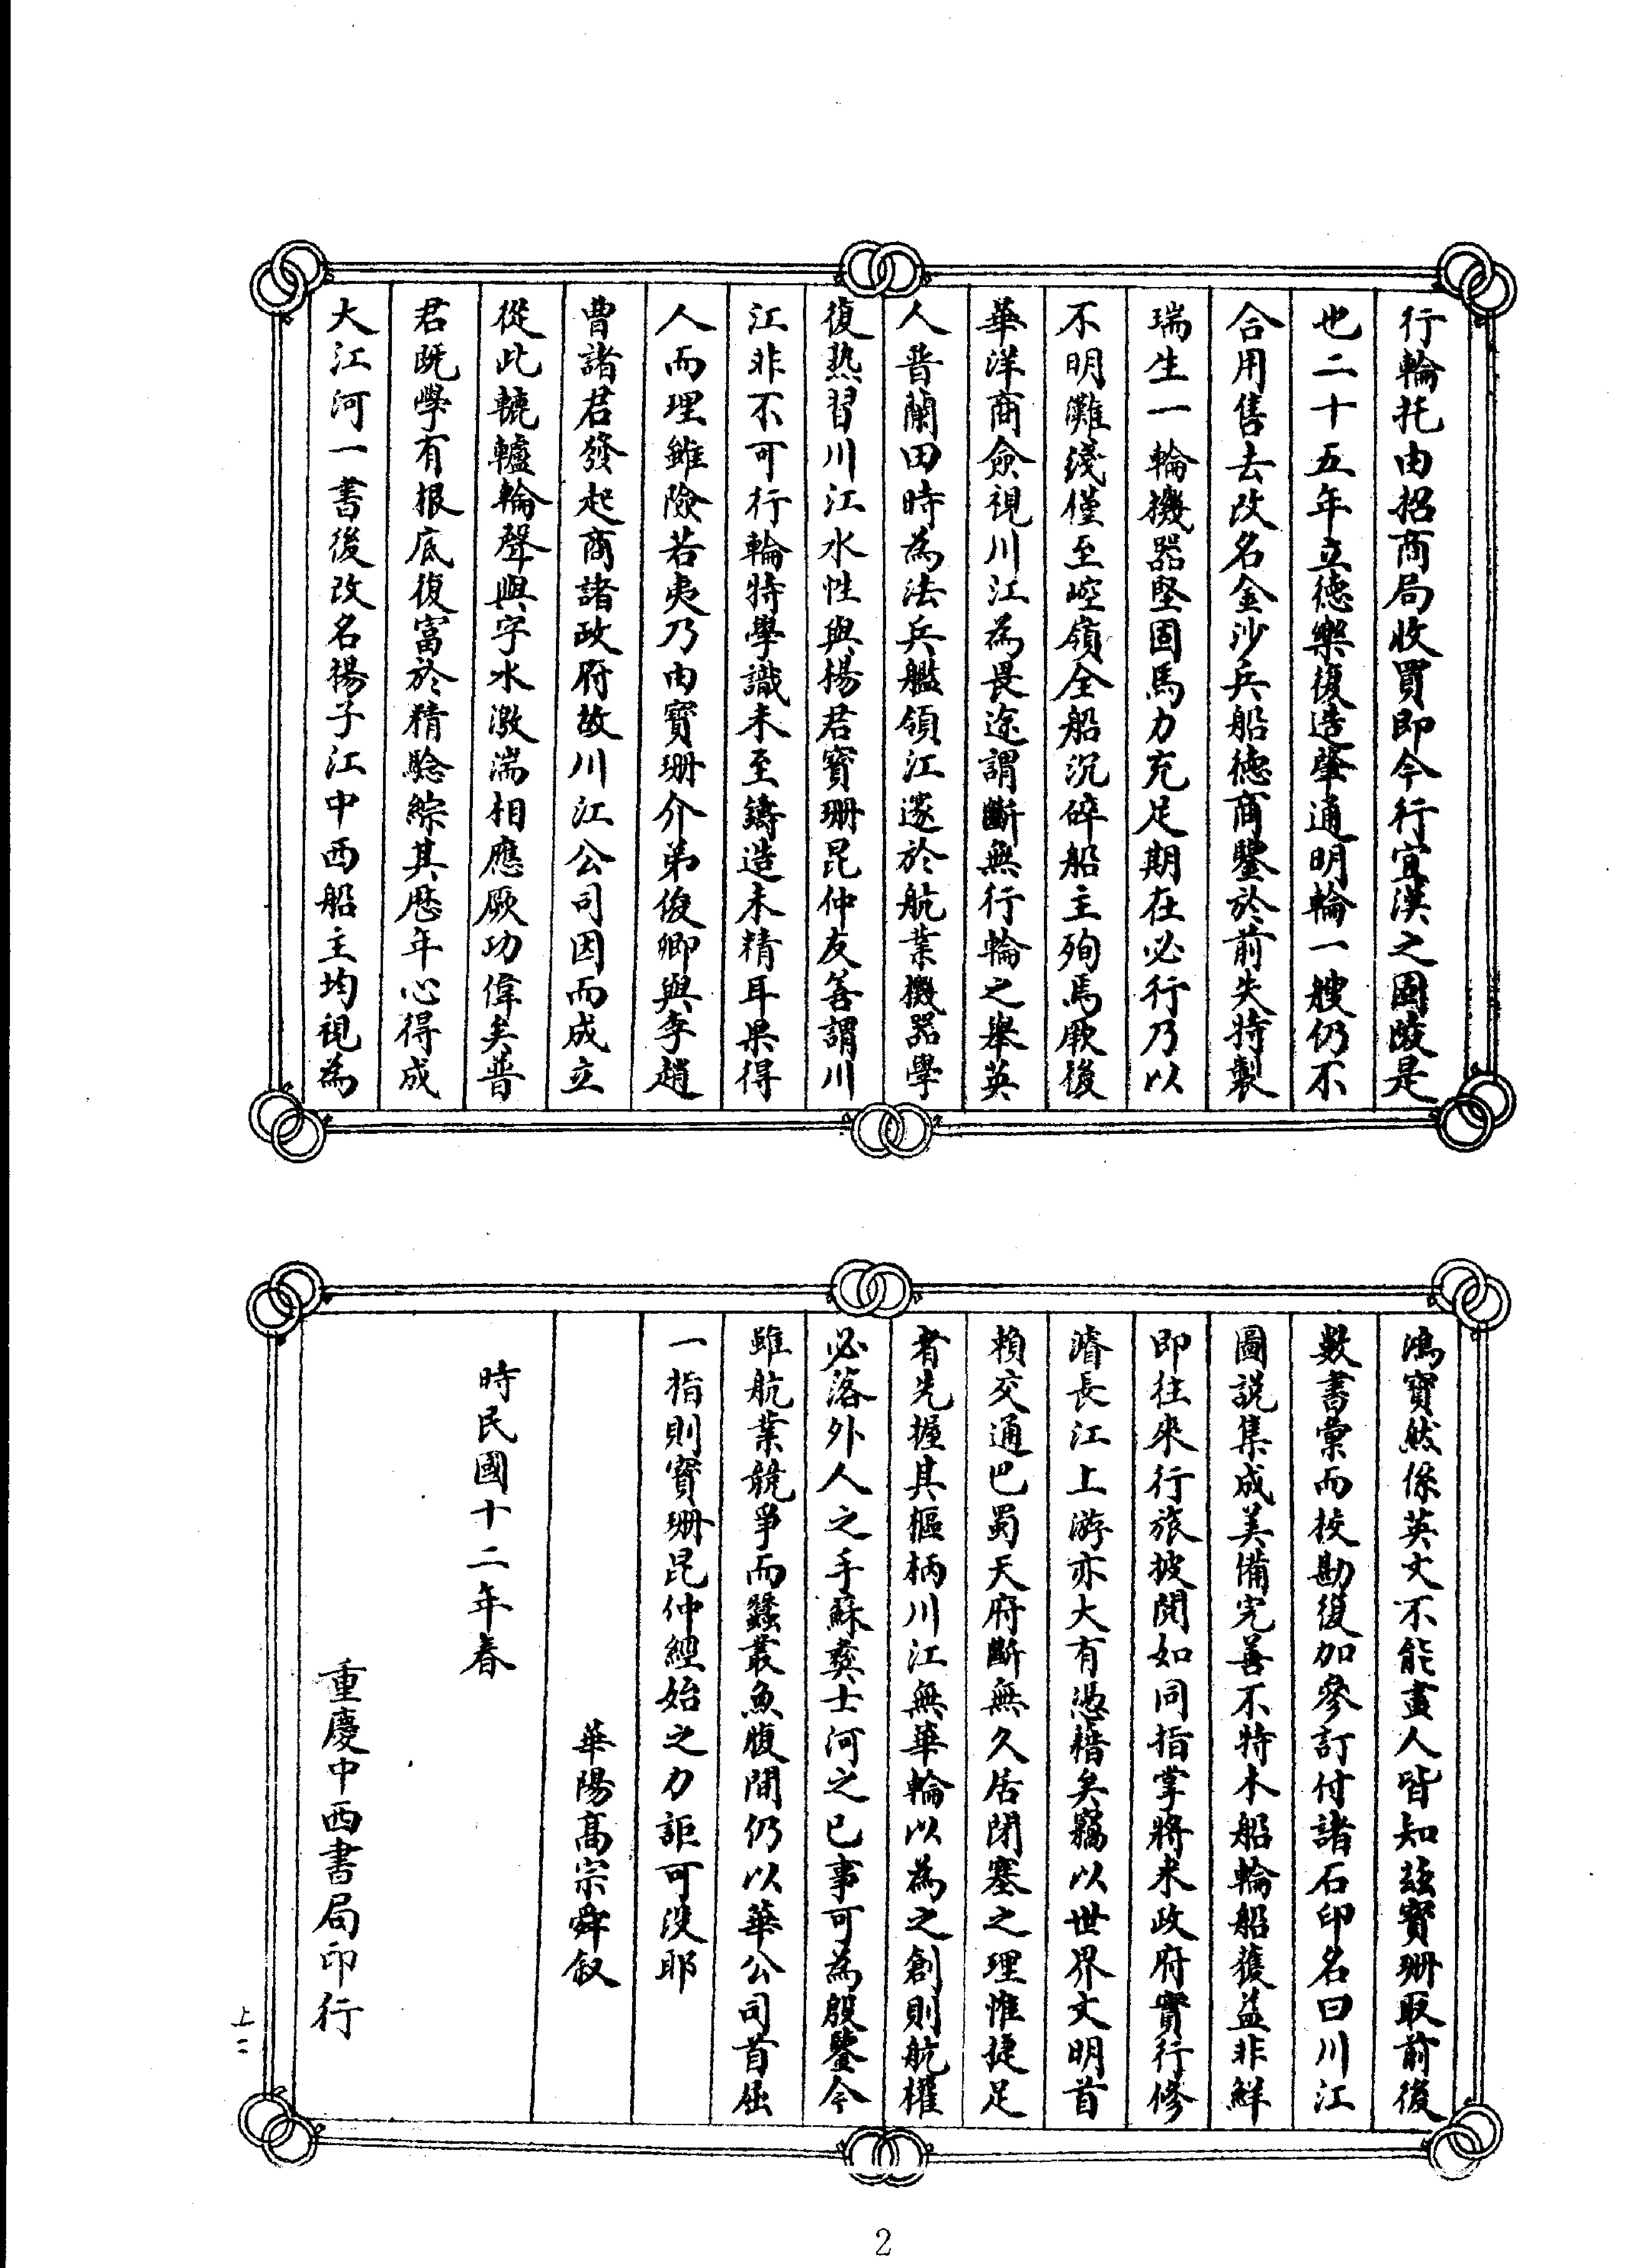 行輪托由招商局收買即今行宜漢之固陵是
也二十五年立德樂復造肇通明輪一艘仍不
合用售去改名金沙兵船德商鑒於前失特製
瑞生一輪機器堅固馬力充足期在必行乃以
不明灘淺僅至崆嶺全船沉碎船主殉焉厥後
華洋商僉視川江為畏途謂斷無行輪之舉英
人普蘭田時為法兵艦領江遂於航業機器學
復熟習川江水性與楊君寶珊昆仲友善謂川
江非不可行輪特學識未至鑄造未精耳果得
人而理雖險若夷乃由寶珊介弟俊卿與李趙
曹諸君發起商諸政府故川江公司因而成立
從此轆轤輪聲與字水激湍相應厥功偉矣普
君既學有根底復富於精驗綜其歷年心得成
大江河一書後改名揚子江中西船主均視為
鴻寶然係英文不能盡人皆知茲寶珊取前後
數書彙而校勘復加參訂付諸石印名曰川江
圖說集成美備完善不特木船輪船獲益非鮮
即往來行旅披閱如同指掌將來政府實行修
濬長江上游亦大有憑藉矣竊以世界文明首
賴交通巴蜀天府斷無久居閉塞之理惟捷足
者先握其樞柄川江無華輪以為之創則航權
必落外人之手蘇彝士河之已事可為殷鑒今
雖航業競爭而蠶叢魚腹間仍以華公司首屈
一指則寶珊昆仲經始之力詎可沒耶
華陽高宗舜叙
時民國十二年春
重慶中西書局印行
上二
2